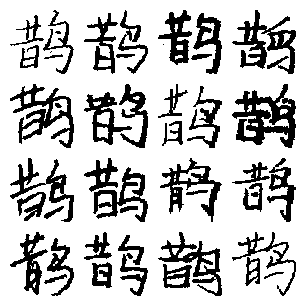 鹊鹊鹊鹊
鹊鹊鹊鹊
鹊鹊鹊鹊
鹊鹊鹊鹊